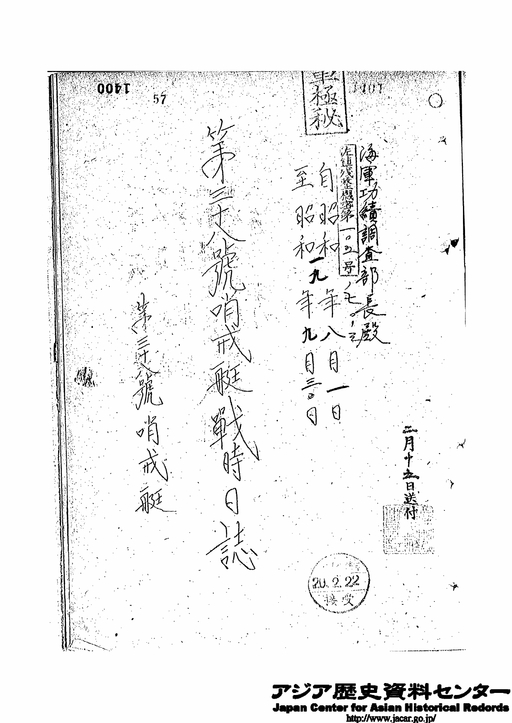 1400
57
1401
軍極秘
海軍功績調査部長殿
自昭和一九年八月一日
至昭和一九年九月三〇日
第三十八號哨戒艇戦時日誌
第三十八號哨戒艇
二月十五日送付
20.2.22
接受
アジア歴史資料センター
Japan Center for Asian Historical Records
http://www.jacar.go.jp/